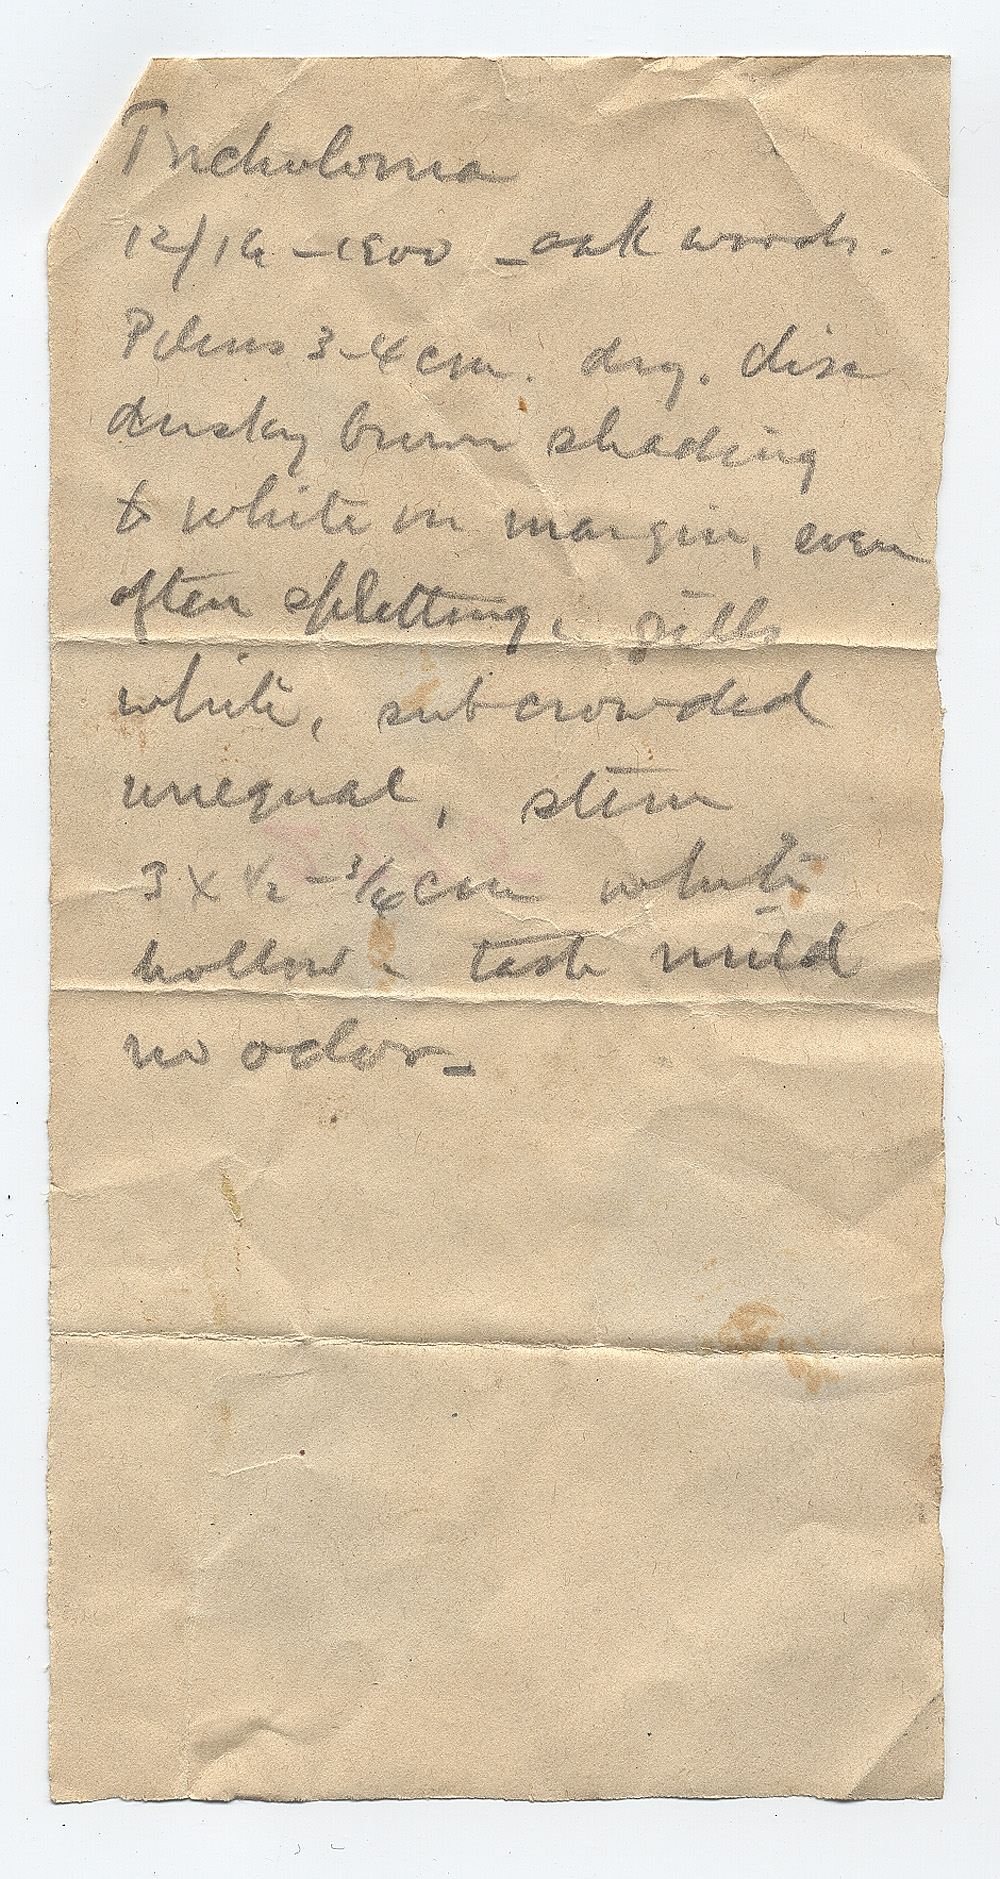 Tricholoma
12/16 - 1900 - oak woods.
Pileus 3-4 cm. dry. disc
dusky brown shading
to white on margin, even
often splitting, gills
white, subcrowded
unequal, stem
3 x ½ - ¾ cm white
hollow - taste mild
no odor -